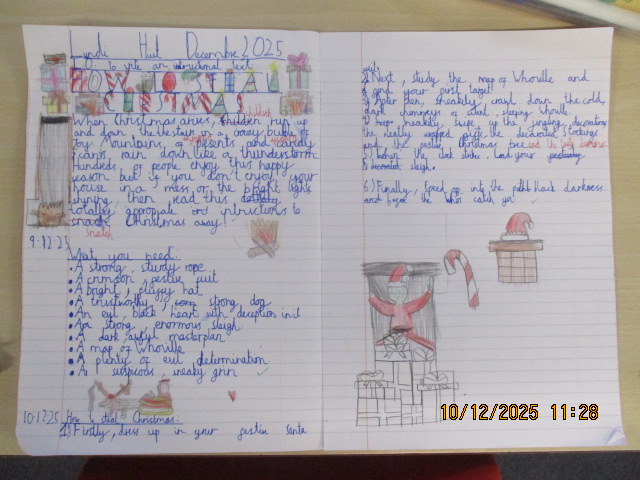 December 2025
To write an instructional text
HOW TO STEAL
CHRISTMAS
When Christmas arives, children run up
and down the the stairs in a crazy buble of
joy. Mountains of presents and candy
canes rain down like a thunderstorm.
Hundreds of people enjoy this happy
season but if you don't enjoy your
house in a mess or the bright lights
shining then read this
totally appropiate intructions to
Christmas away!
snatch
9.12.25
What you need:
• A strong, sturdy rope
• A crimson, festive suit
• A bright, fluffy hat
• A trustworthy, strong dog
• An evil, black heart with deception in it
• A strong, enormous sleigh
• A dark, awful masterplan
• A map of Whoville
• A plenty of evil determination.
• A suspicious, sneaky grin
10.12.25 How to steal Christmas:
1) Firstly, dress up in your festive santa
suit.
2) Next, study the map of Whoville and
find your first target.
3) After then, sneakily, crawl down the cold,
dark chimneys of silent, sleeping whoville
the neatly wrapped gifts, the decorated stockings
and the festive Christmas tree
5) When the clock strikes, load your
sleigh.
6) Finally, speed off into the pitch black darkness
and before the whos catch you
10/12/2025 11:28